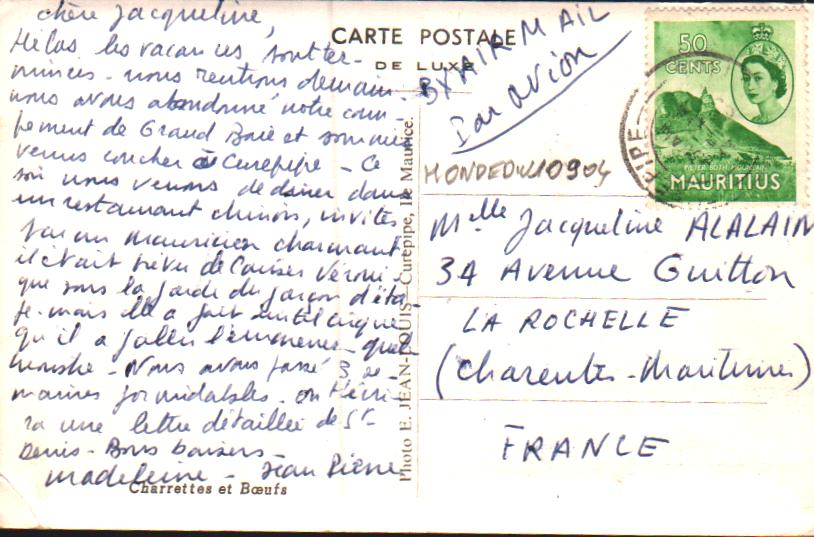 chère Jacqueline,
Hélas les vacances sont ter-
minées - nous rentrons demain -
nous avons abandonné notre cam-
pement de Grand Baie et sommes
venus coucher à Curepipe - Ce
soir nous venons de dîner dans
un restaurant chinois, invités
par un mauricien charmant
il était prévu de laisser Véroni-
que sous la garde du garçon d'éta-
ge mais elle a fait un tel cirque
qu'il a fallu l'emmener - quel
monstre - Nous avons passé 3 se-
maines formidables. on t'écri-
ra une lettre détaillée de St-
Denis - Bons baisers -
Madeleine - Jean Pierre
Charrettes et Bœufs
CARTE POSTALE
DE LUXE
BY AIR MAIL
Par avion
Photo E. JEAN-LOUIS - Curepipe, Ile Maurice.
50
CENTS
PIETER BOTH MOUNTAIN
MAURITIUS
PIPE
Melle Jacqueline ALALAIN
34 Avenue Guitton
LA ROCHELLE
(Charentes-Maritimes)
FRANCE